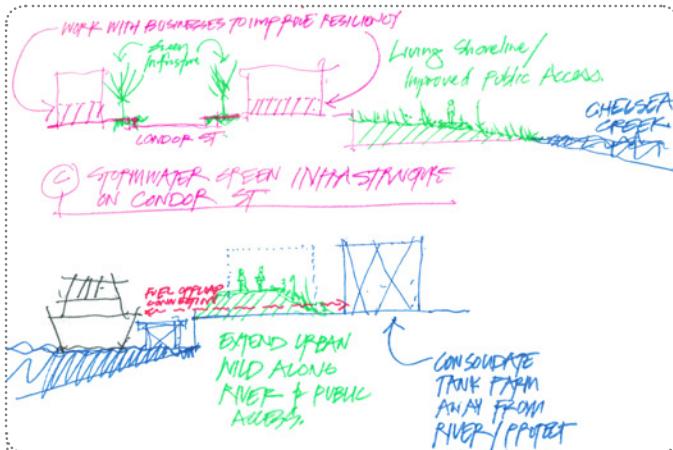 WORK WITH BUSINESSES TO IMPROVE RESILIENCY
Green
Infrastrure
Living Shoreline/
Improved Public Access.
CHELSEA
CREEK
CONDOR ST
C STORMWATER GREEN INFRASTRUCTURE
ON CONDOR ST
FUEL OFFLOAD
CONNECTION
EXTEND URBAN
WILD ALONG
RIVER & PUBLIC
ACCESS.
CONSOLIDATE
TANK FARM
AWAY FROM
RIVER/PROTECT